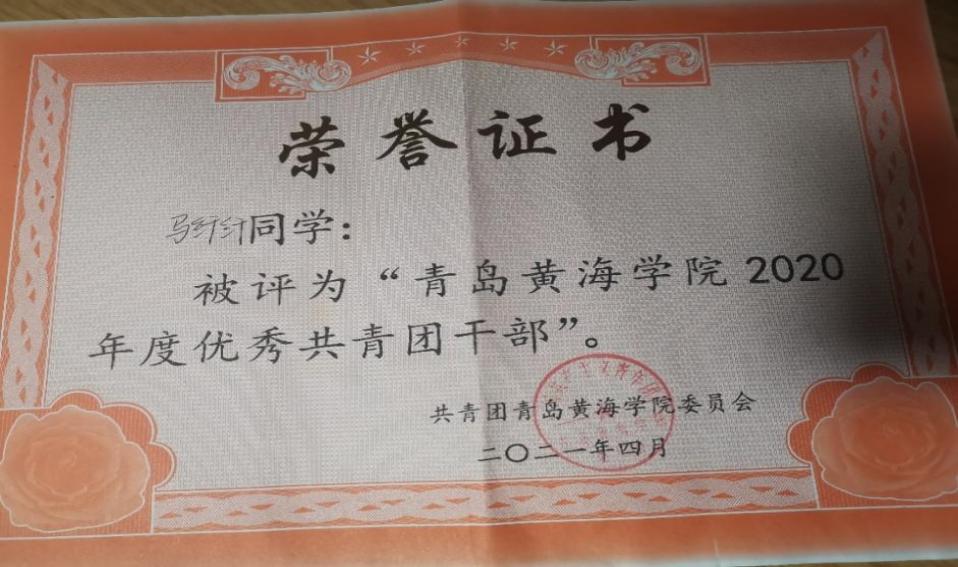 荣誉证书
马纤纤同学：
被评为“青岛黄海学院2020
年度优秀共青团干部”。
共青团青岛黄海学院委员会
二〇二一年四月